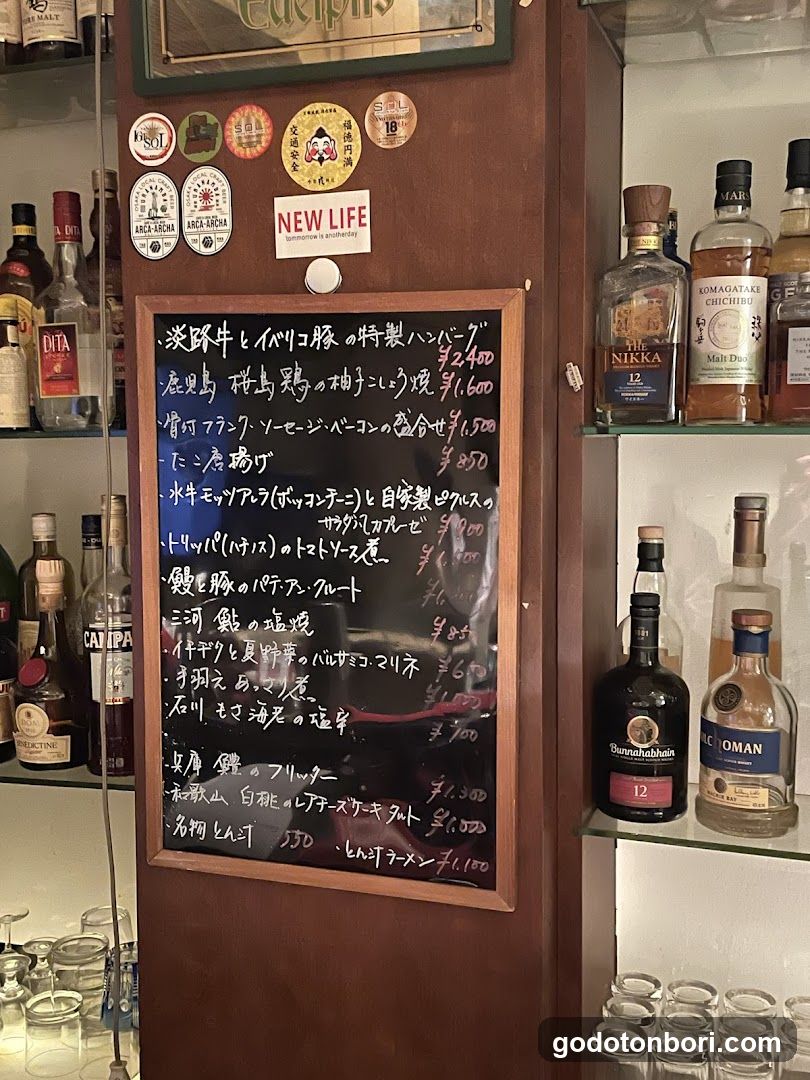 Edelpils
SOL
SOL
18
交通安全
福徳円満
OSAKA LOCAL CRAFT BEER
ARCA-ARCHA
OSAKA LOCAL CRAFT BEER
ARCA-ARCHA
NEW LIFE
tommorow is anotherday
・淡路牛とイベリコ豚の特製ハンバーグ
¥2,400
・鹿児島 桜島鶏の柚子こしょう焼 ¥1,600
・骨付フランク・ソーセージ・ベーコンの盛合せ ¥1,500
・たこ唐揚げ ¥850
・水牛モッツアレラ(ボッコンチーニ)と自家製ピクルスの
サラダ カプレーゼ ¥900
・トリッパ(ハチノス)のトマトソース煮
・鰻と豚のパテ・アン・クルート
・三河 鮎の塩焼 ¥850
・イチヂクと夏野菜のバルサミコ・マリネ
・手羽元あっさり煮
・石川 もさ海老の塩辛 ¥700
・兵庫 鱧のフリッター ¥1,300
・和歌山 白桃のレアチーズケーキタルト ¥1,000
・名物とん汁 550
・とん汁ラーメン ¥1,100
DITA
DITA
CAMPA
BENEDICTINE
THE
NIKKA
12
MARS
KOMAGATAKE
CHICHIBU
Malt Duo
1881
Bunnahabhain
12
OMAN
godotonbori.com